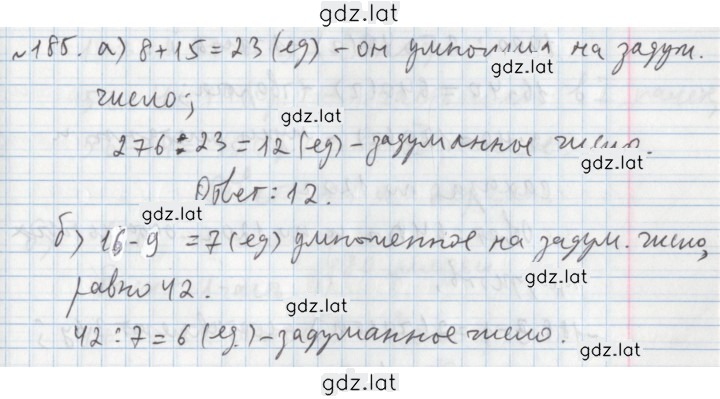 gdz.lat
№185. а) 8+15=23 (ед) - он умножил на задум.
gdz.lat
число;
gdz.lat
276:23=12 (ед) - задуманное число.
gdz.lat
Ответ: 12.
gdz.lat
б) 16-9 =7 (ед) умноженное на задум. число,
gdz.lat
равно 42.
gdz.lat
42:7=6 (ед) - задуманное число.
gdz.lat
gdz.lat